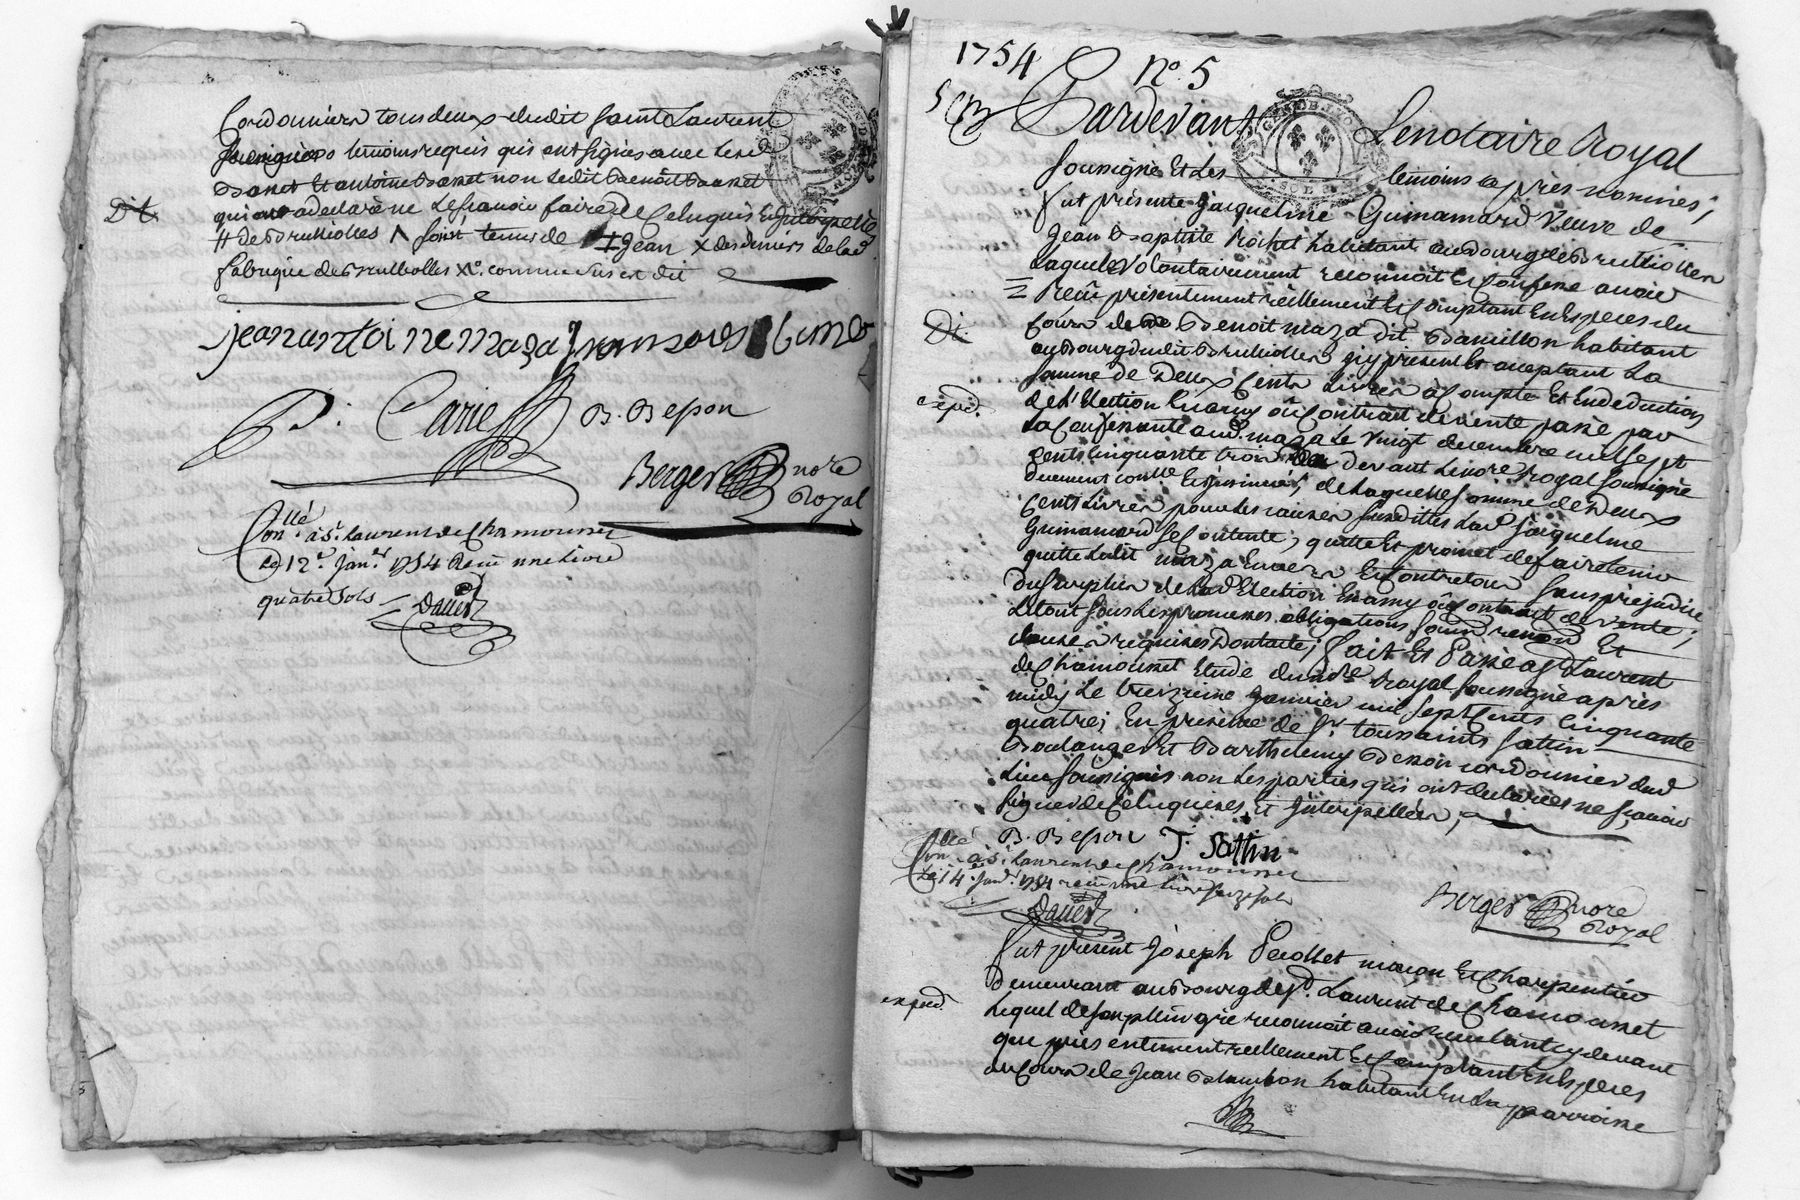 Cordonnier tous deux dudit Saint Laurent
temoins requis qui ont signes avec led
et antoine non ledit benoit
qui a declaré ne le scavoir faire de ce enquis et interpellé
Dit
# de Brullioles soint tenus de Jean X des deniers de lad
fabrique de Brullolles Xo. comme sus est dit
jean antoine maza
P. Carie B. Beson
Berger nore
Royal
Conllé à St. Laurent de Chamousset
Le 12e. Janer 1754 Recu une livre
quatre sols
Daver
1754 No. 5
Pardevant Le notaire Royal
soussigné Et les temoins après nommés;
fut présente Jacqueline Guinamard Veuve de
Jean Baptiste Rochet habitante au bourg de Brulliolles
Laquelle volontairement reconnoit Et confesse avoir
Reçu présentement réellement Et comptant En Especes du
Dit
cours de Benoit maza dit habitant
au bourg dudit Brulliolles icy present Et aceptant La
somme de Deux Cents Livres à compte Et En deduction
exped.
de L'Election En amy ou Contrait de vente passé par
La Confessante aud. maza Le vingt decembre mil sept
cents cinquante trois devant Le nore. Royal soussigné
deuement conllé Et insinué; de Laquelle somme de Deux
cents Livres pour les causes susdittes Lad. Jacqueline
Guinamard se contente, quitte Et promet de faire tenir
quitte Ledit maza Envers Et Contre tous sans prejudice
du surplus de Lad. Election En amy ou Contrait de vente;
Le tout sous Les promesses obligations soum renon Et
clauses requises Dont acte, fait Et Passé a St Laurent
de Chamousset Etude du nore Royal soussigné après
midy Le treizieme janvier mil sept Cents Cinquante
quatre; En présence de Sr. toussaints Sattin
Boulanger Et Barthelemy Besson cordonnier dud
Lieu soussignés non Les parties qui ont declarées ne scavoir
signer de Ce enquises, Et Interpellées;
B. Beson J. Sattin
Conllé à St. Laurent de Chamousset
Le 14e. Janer 1754 recu une livre seize sols
Daver
Berger nore
Royal
fut présent Joseph Perollet maçon Et Charpentier
Demeurant au Bourg de St. Laurent de Chamousset
exped.
Lequel de son plein gré reconnoit avoir receu tant cy devant
que présentement réellement Et Comptant En Especes
du cours de Jean habitant En La parroisse